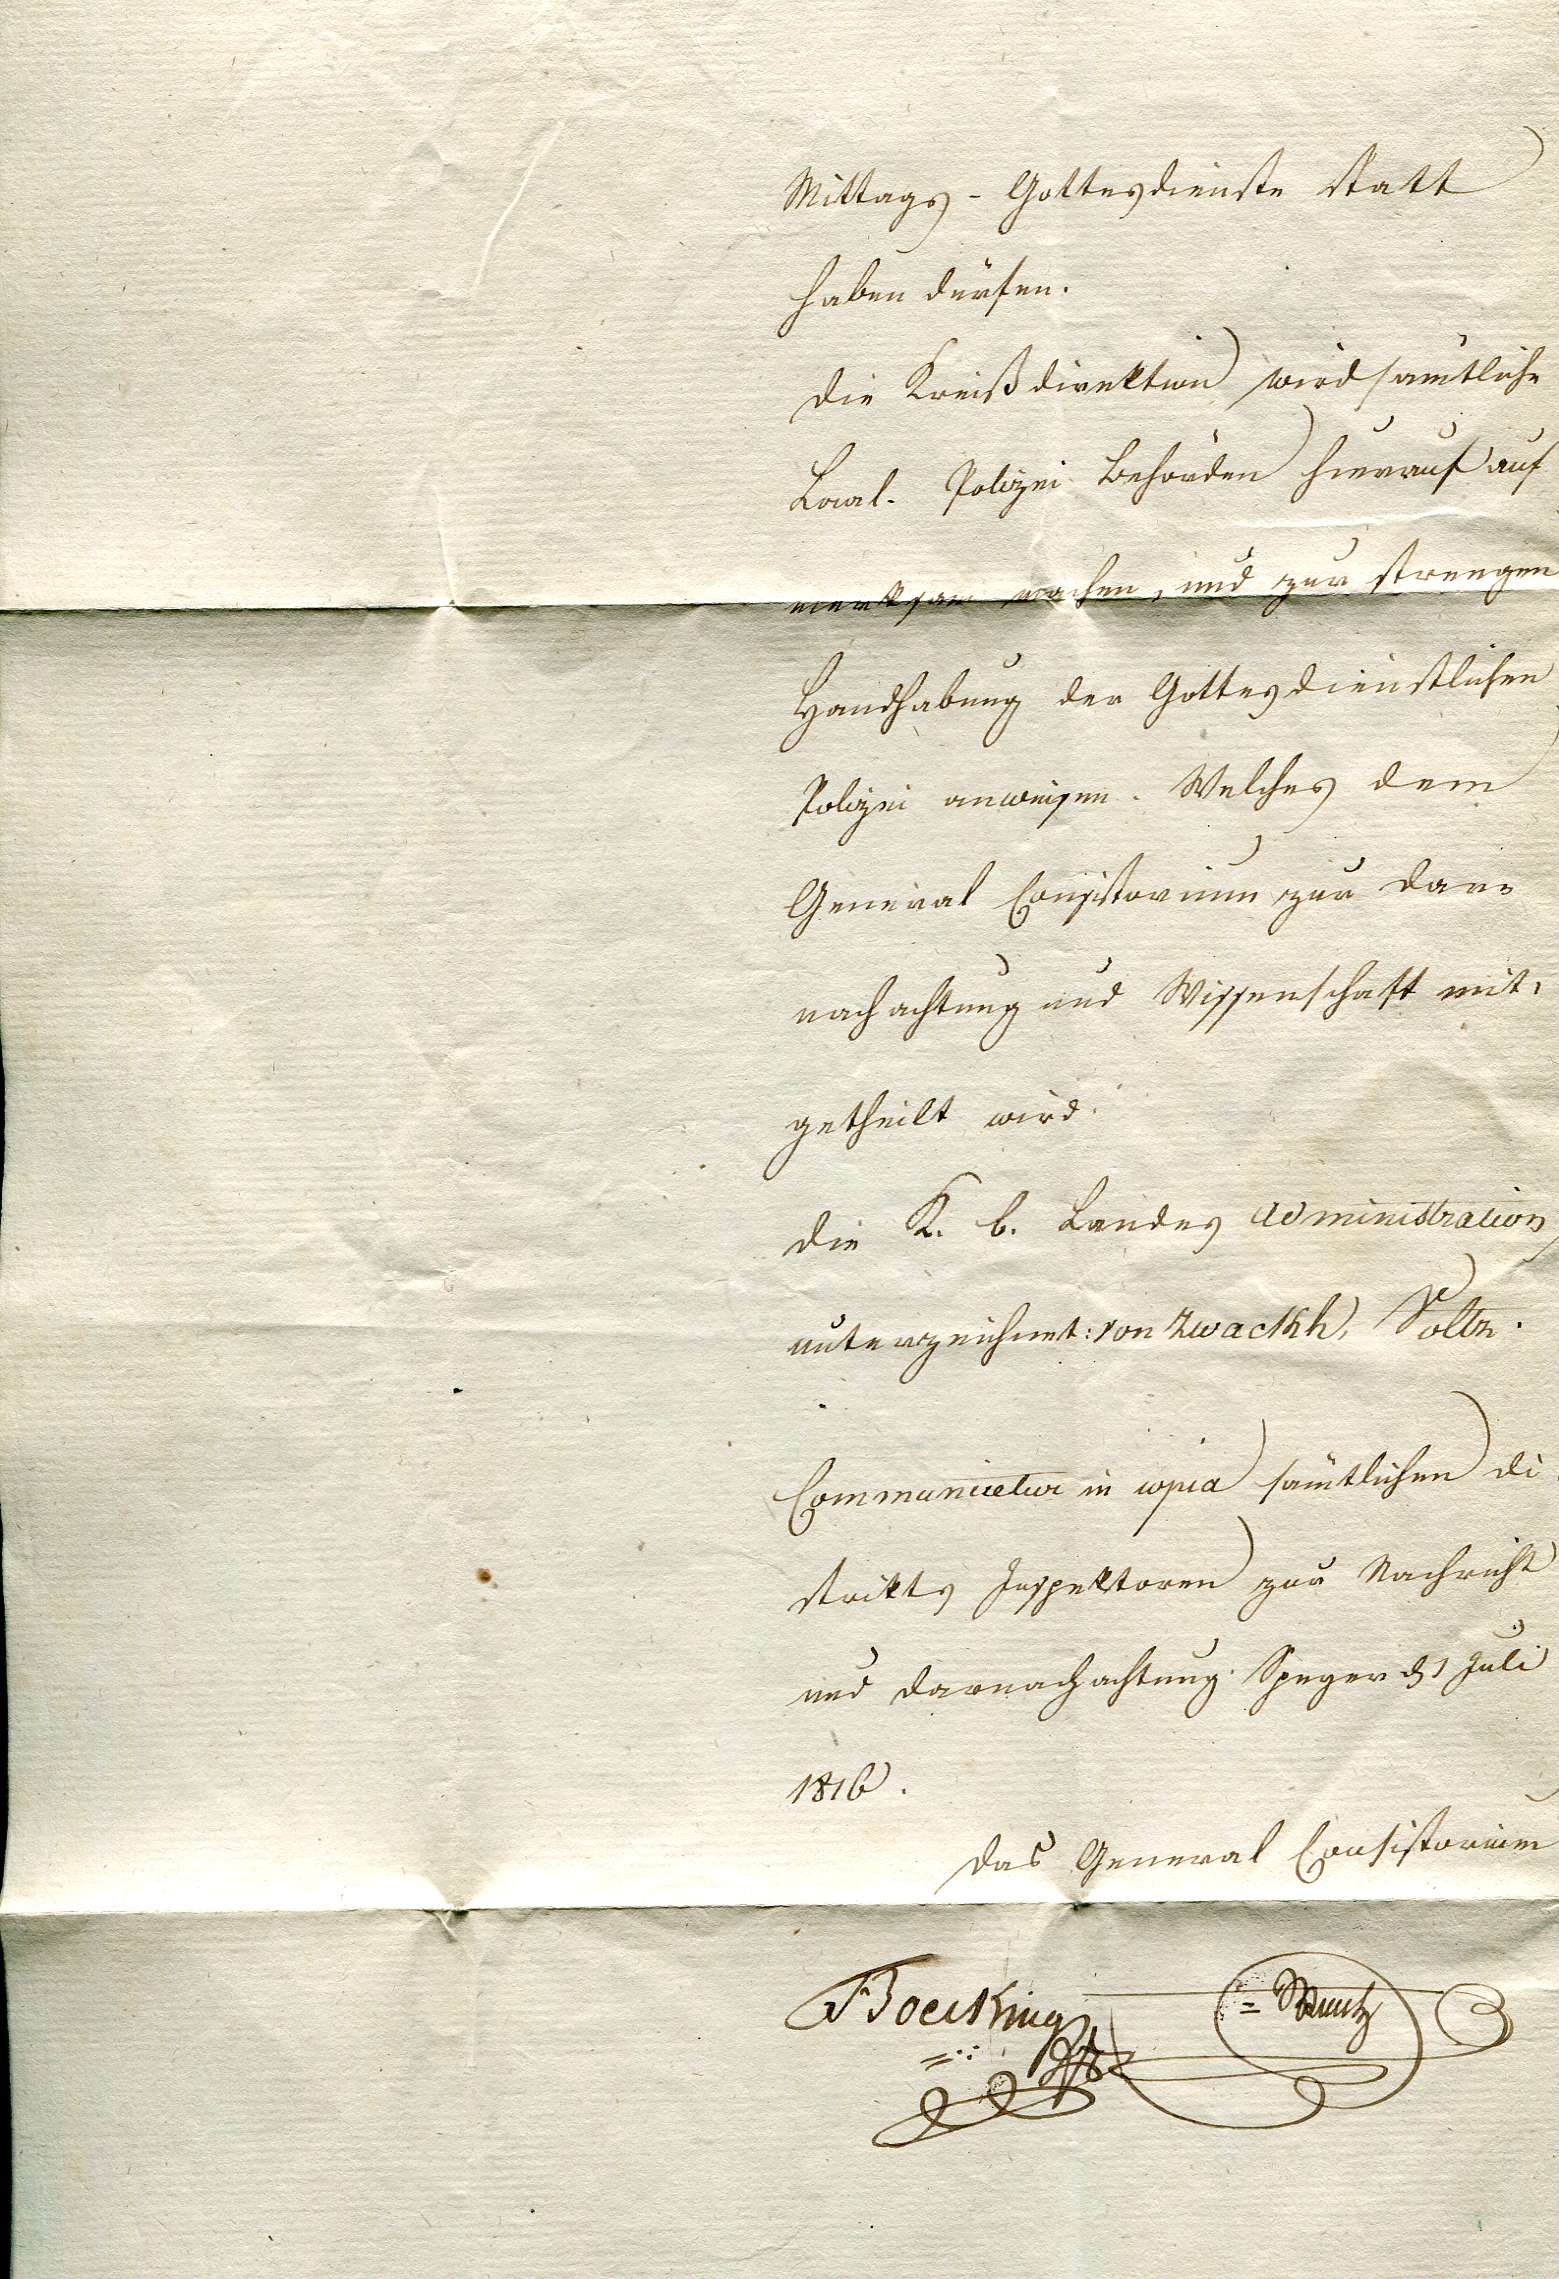 Mittags - Gottesdienste statt
haben dürfen.
die Kreißdirektion wird sämtliche
Local- Polizei Behörden hierauf auf
merksam machen, und zur strengen
Handhabung der Gottesdienstlichen
Polizei anweisen. Welches dem
General Consistorium zur Dar=
nachachtung und Wissenschaft mit=
getheilt wird.
die K. b. Landes Administration,
unterzeichnet: von Zwackh,
Communicetur in copia sämtlichen Di
strikts Inspektoren zur Nachricht
und Darnachachtung. Speyer d 1 Juli
1816.
das General Consistorium
Boecking